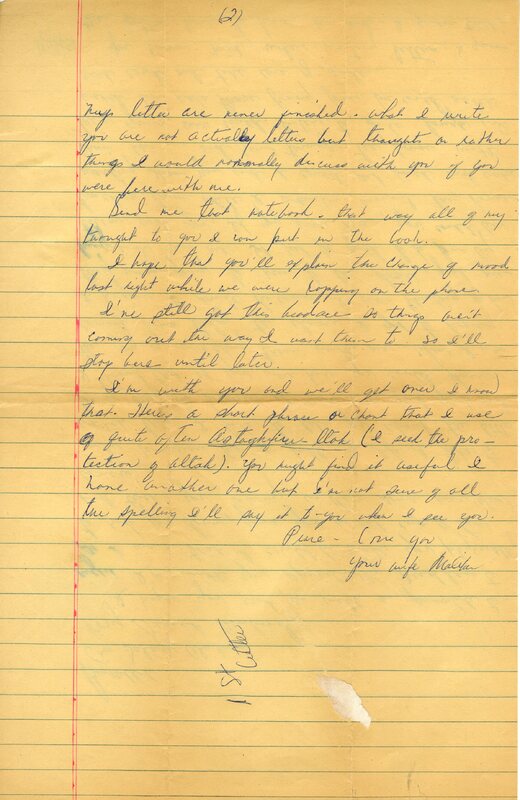 (2)
My letter are never finished. What I write
you are not actually letters but thoughts or rather
things I would normally discuss with you if you
were here with me.
Send me that notebook. that way all of my
thought to you I can put in the book.
I hope that you'll explain the change of mood
last night while we were rapping on the phone.
I've still got this headace so things arent
coming out the way I want them to so I'll
stop here until later.
I'm with you and we'll get over I know
that. Here's a short phrase or chant that I use
quite often Astaghfiru-llah (I seek the pro-
tection of allah). You might find it useful I
have another one but I'm not sure of all
the spelling I'll say it to you when I see you.
Peace - Love you
your wife
1st Letter